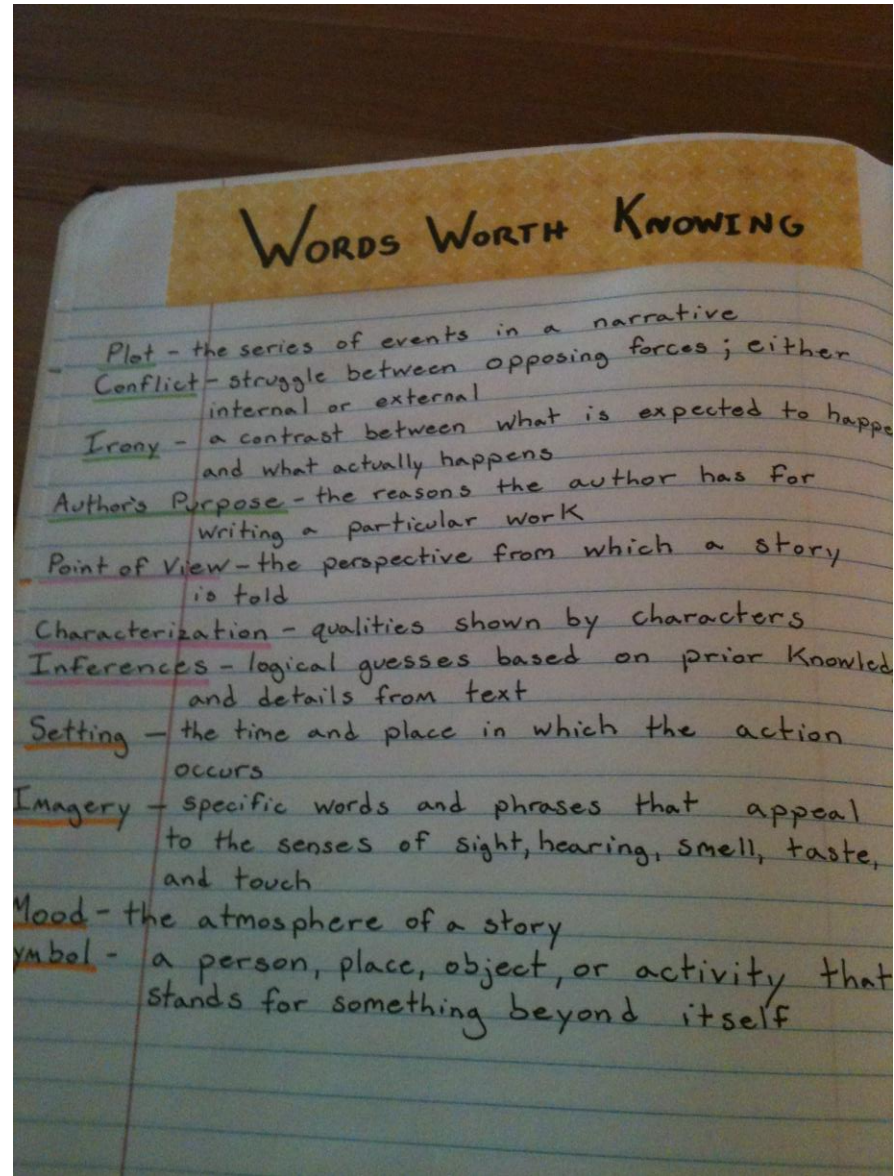 WORDS WORTH KNOWING
Plot - the series of events in a narrative
Conflict - struggle between opposing forces; either
internal or external
Irony - a contrast between what is expected to happe
and what actually happens
Author's Purpose - the reasons the author has for
writing a particular work
Point of View - the perspective from which a story
is told
Characterization - qualities shown by characters
Inferences - logical guesses based on prior Knowled
and details from text
Setting - the time and place in which the action
occurs
Imagery - specific words and phrases that appeal
to the senses of sight, hearing, smell, taste,
and touch
Mood - the atmosphere of a story
ymbol - a person, place, object, or activity that
stands for something beyond itself